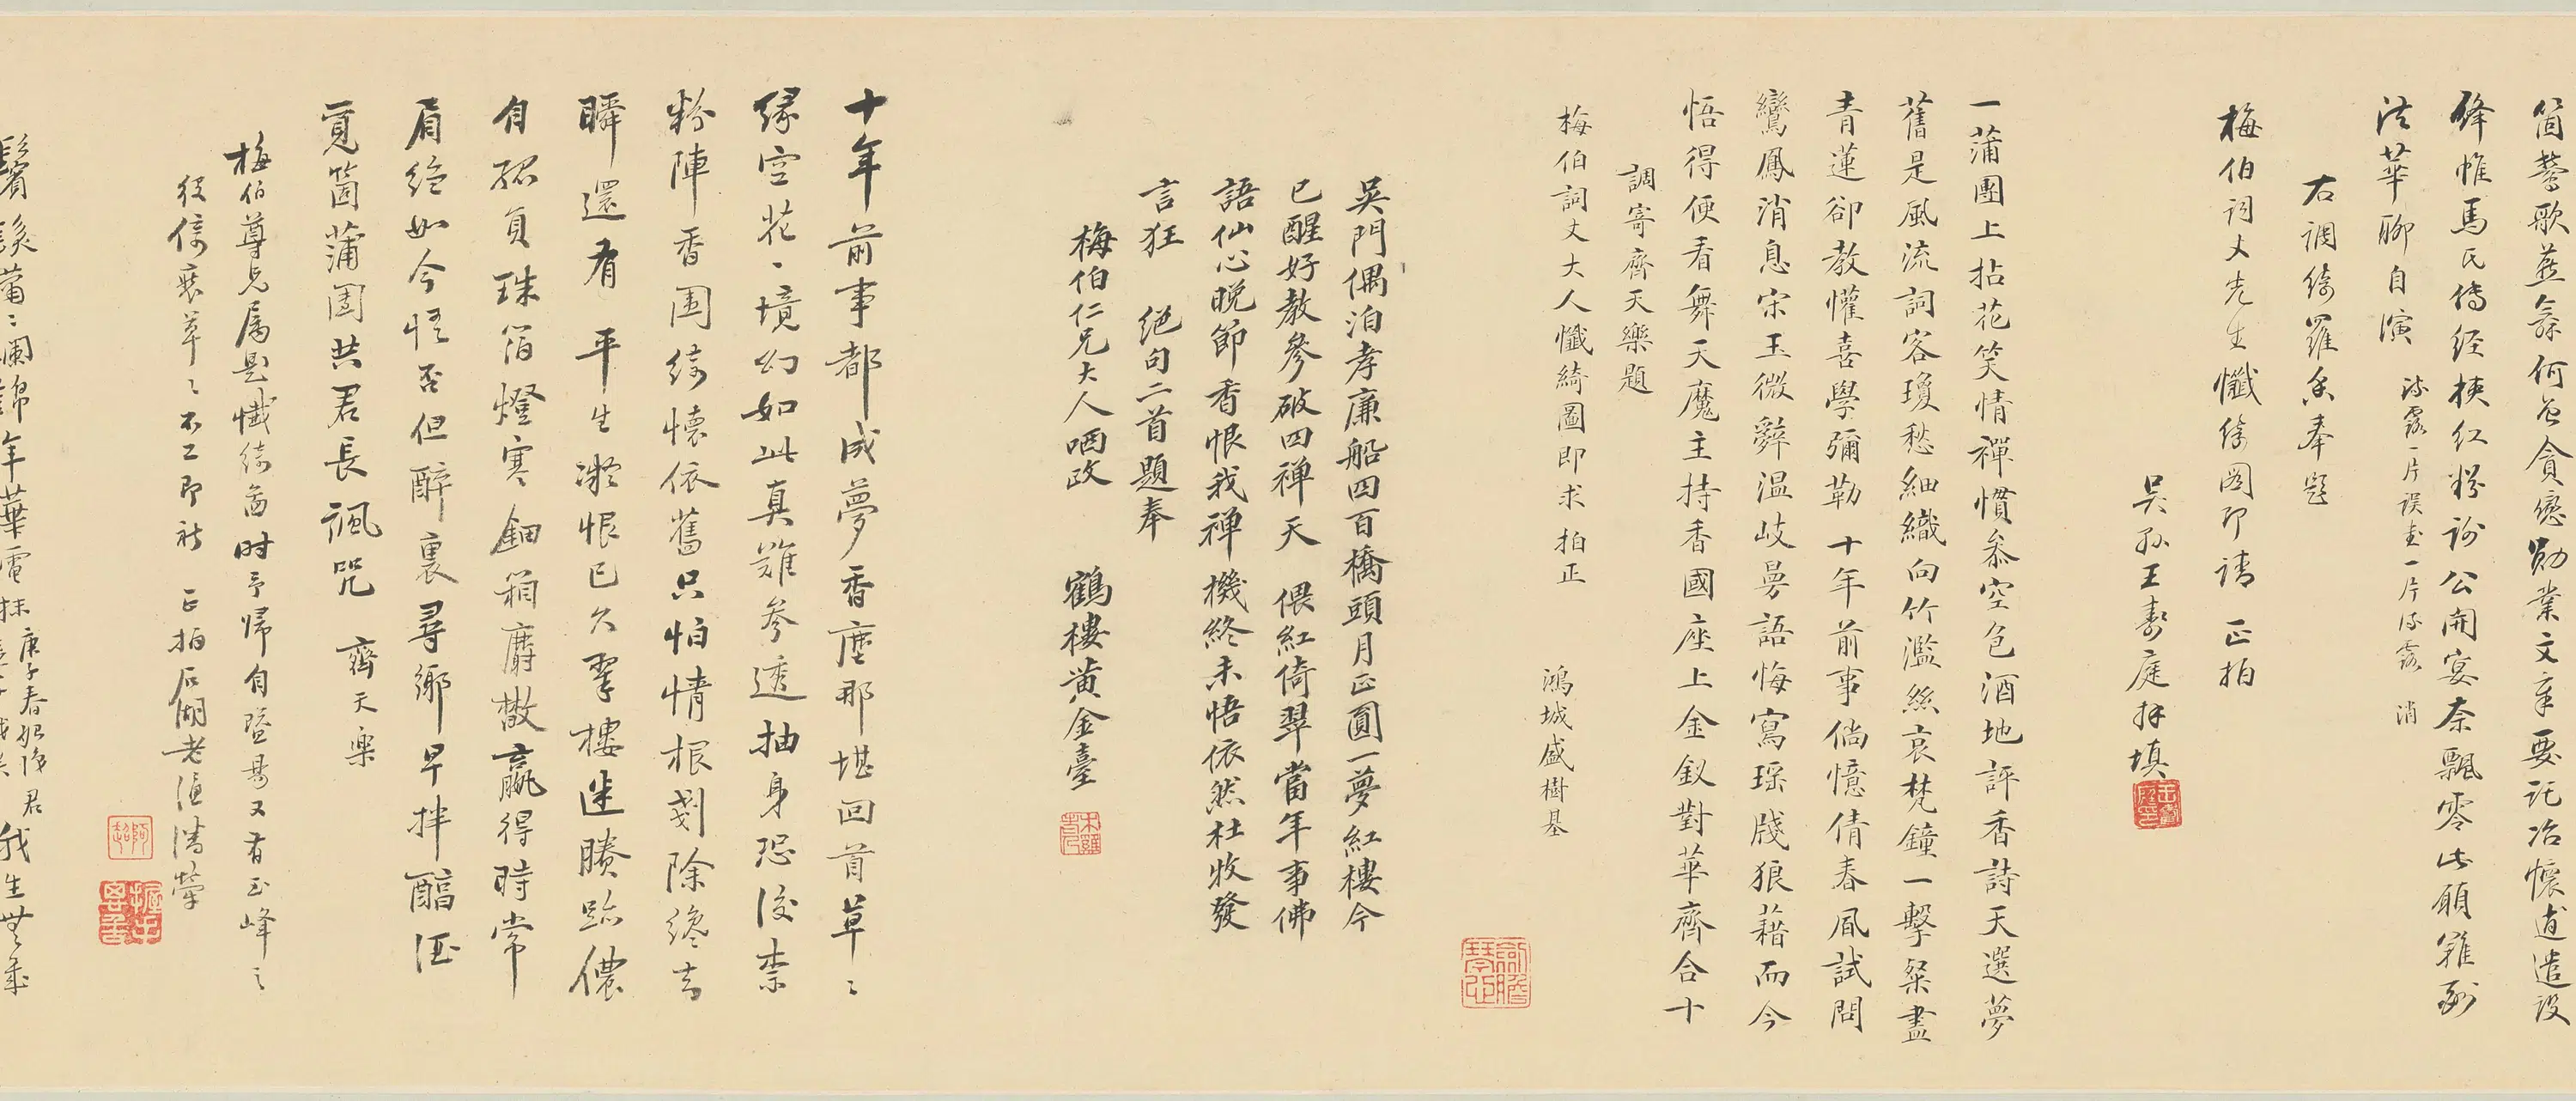 箇鶯歌燕舞何必貪戀勋業文章要託冶懷道遣設
絳帷馬氏傳經挾紅粉謝公開宴奈飄零此願難酬
法華聊自演
流露一片誤書一片流露 消
右調綺羅香奉題
梅伯詞丈先生懺綺圖即請 正拍
吳孫王壽庭拜填
一蒲團上拈花笑情禪慣參空色酒地評香詩天選夢
舊是風流詞客瓊愁細織向竹濫絲哀梵鐘一擊粲盡
青蓮卻教懽喜學彌勒 十年前事倘憶倩春風試問
鸞鳳消息宋玉微辭溫岐曼語悔寫瑤牋狼藉而今
悟得便看舞天魔主持香國座上金釵對華齊合十
調寄齊天樂題
梅伯詞丈大人懺綺圖即求 拍正
鴻城盛樹基
吳門偶泊孝廉船四百橋頭月正圓一夢紅樓今
已醒好教參破四禪天 偎紅倚翠當年事佛
語仙心晚節香恨我禪機終未悟依然杜牧發
言狂 絕句二首題奉
梅伯仁兄大人哂政 鶴樓黃金臺
十年前事都成夢香塵那堪回首草〻
緣空花〻境幻如此真難參透抽身恐後柰
粉陣香圍綺懷依舊只怕情根剗除纔去
瞬還有 平生漸恨已久翠樓迷賸跡儂
自孤負珠箔燈寒鈿箱麝散贏得時常
眉絕如今悟否但醉裏尋鄉早拌酩酒
覓箇蒲團共君長諷咒 齊天樂
梅伯尊兄屬題懺綺圖时予歸自暨陽又有玉峰之
役倚裝草〻不工即祈 正拍石湖老漁潘瑩
鬢談蕭〻瀾錦年華電抹
庚子春
君
我生無幾